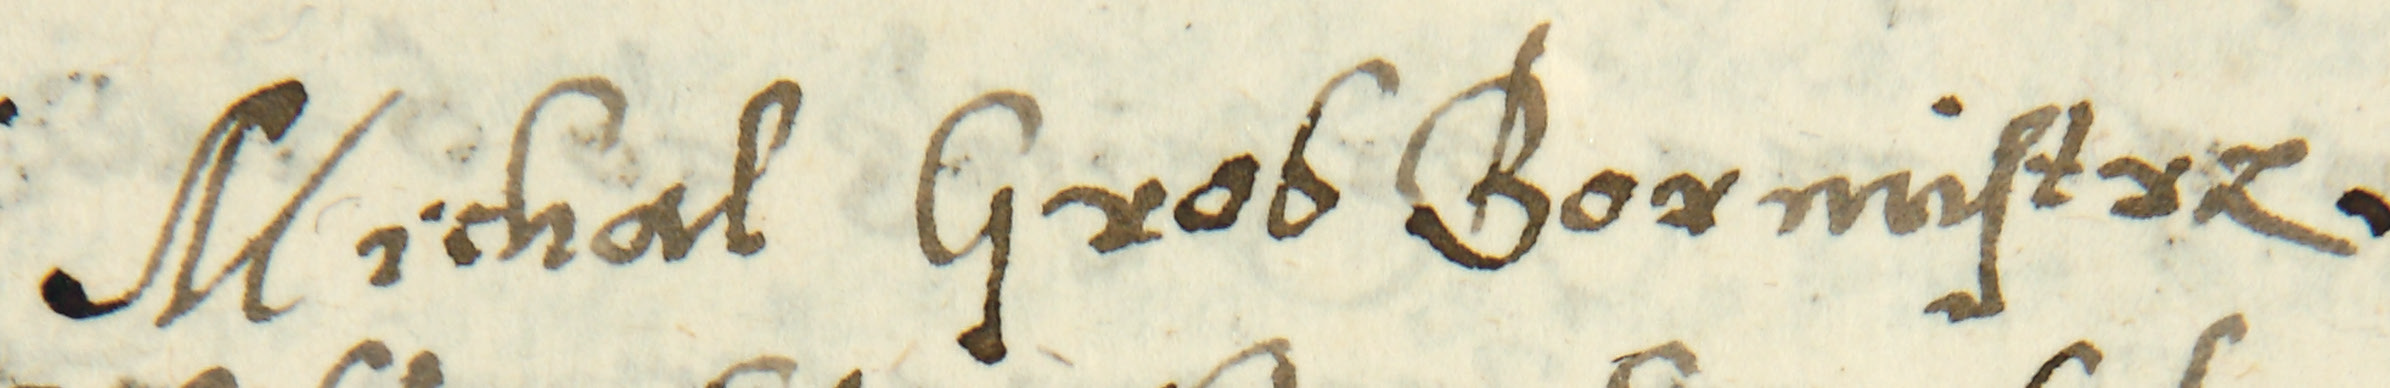 Michal Grob Bormistrz.